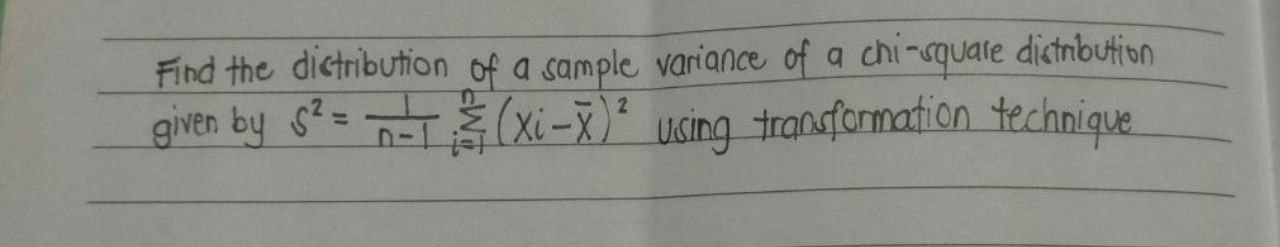 Find the distribution of a sample variance of a chi-square distribution
given by S² = 1/n-1 n∑i=1 (xi - x̄)² using transformation technique